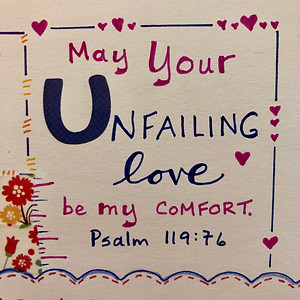 May Your
UNFAILING
love
be my COMFORT.
Psalm 119:76